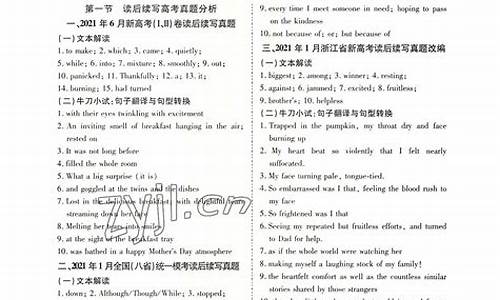 第一节　读后续写高考真题分析
一、2021 年 6 月新高考(Ⅰ,Ⅱ)卷读后续写真题
(一)文本解读
1. to make; 2. which; 3. came; 4. quietly;
5. while; 6. into; 7. mixture; 8. smoothly; 9. out;
10. panicked; 11. Thankfully; 12. a; 13. it;
14. burning; 15. had turned
(二)牛刀小试:句子翻译与句型转换
1. with their eyes twinkling with excitement
2. An inviting smell of breakfast hanging in the air;
rested on
3. It was not long before
4. filled the whole room
5. What a big surprise (it is)
6. and goggled at the twins and the dishes
7. Lost in the delicious breakfast, with delightful tears
streaming down her face
8. Melting her tears into smiles
9. at the sight of the breakfast tray
10. was bathed in a happy Mother's Day atmosphere
二、2021 年 1 月全国(八省)统一模考读后续写真题
(一)文本解读
1. down; 2. Although/Though/While; 3. stopped;
9. every time I meet someone in need; hoping to pass
on the kindness
10. not because of; or; but because of
三、2021 年 1 月浙江省新高考读后续写真题改编
(一)文本解读
1. biggest; 2. among; 3. winner; 4. resting;
5. against; 6. jammed; 7. excited; 8. fruitless;
9. brother's; 10. helpless
(二)牛刀小试:句子翻译与句型转换
1. Trapped in the pumpkin, my throat dry and face
burning up
2. My heart beat so violently that I felt nearly
suffocated.
3. My face turning pale, tongue-tied.
4. So embarrassed was I that, feeling the blood rush to
my face
5. So frightened was I that
6. Seeing my repeated but fruitless efforts, and turned
to Dad for help.
7. as if the whole world were watching her
8. making myself a laughing stock of my family!
9. the heartfelt comfort as well as the countless similar
stories shared by those strangers
zyjl.cn